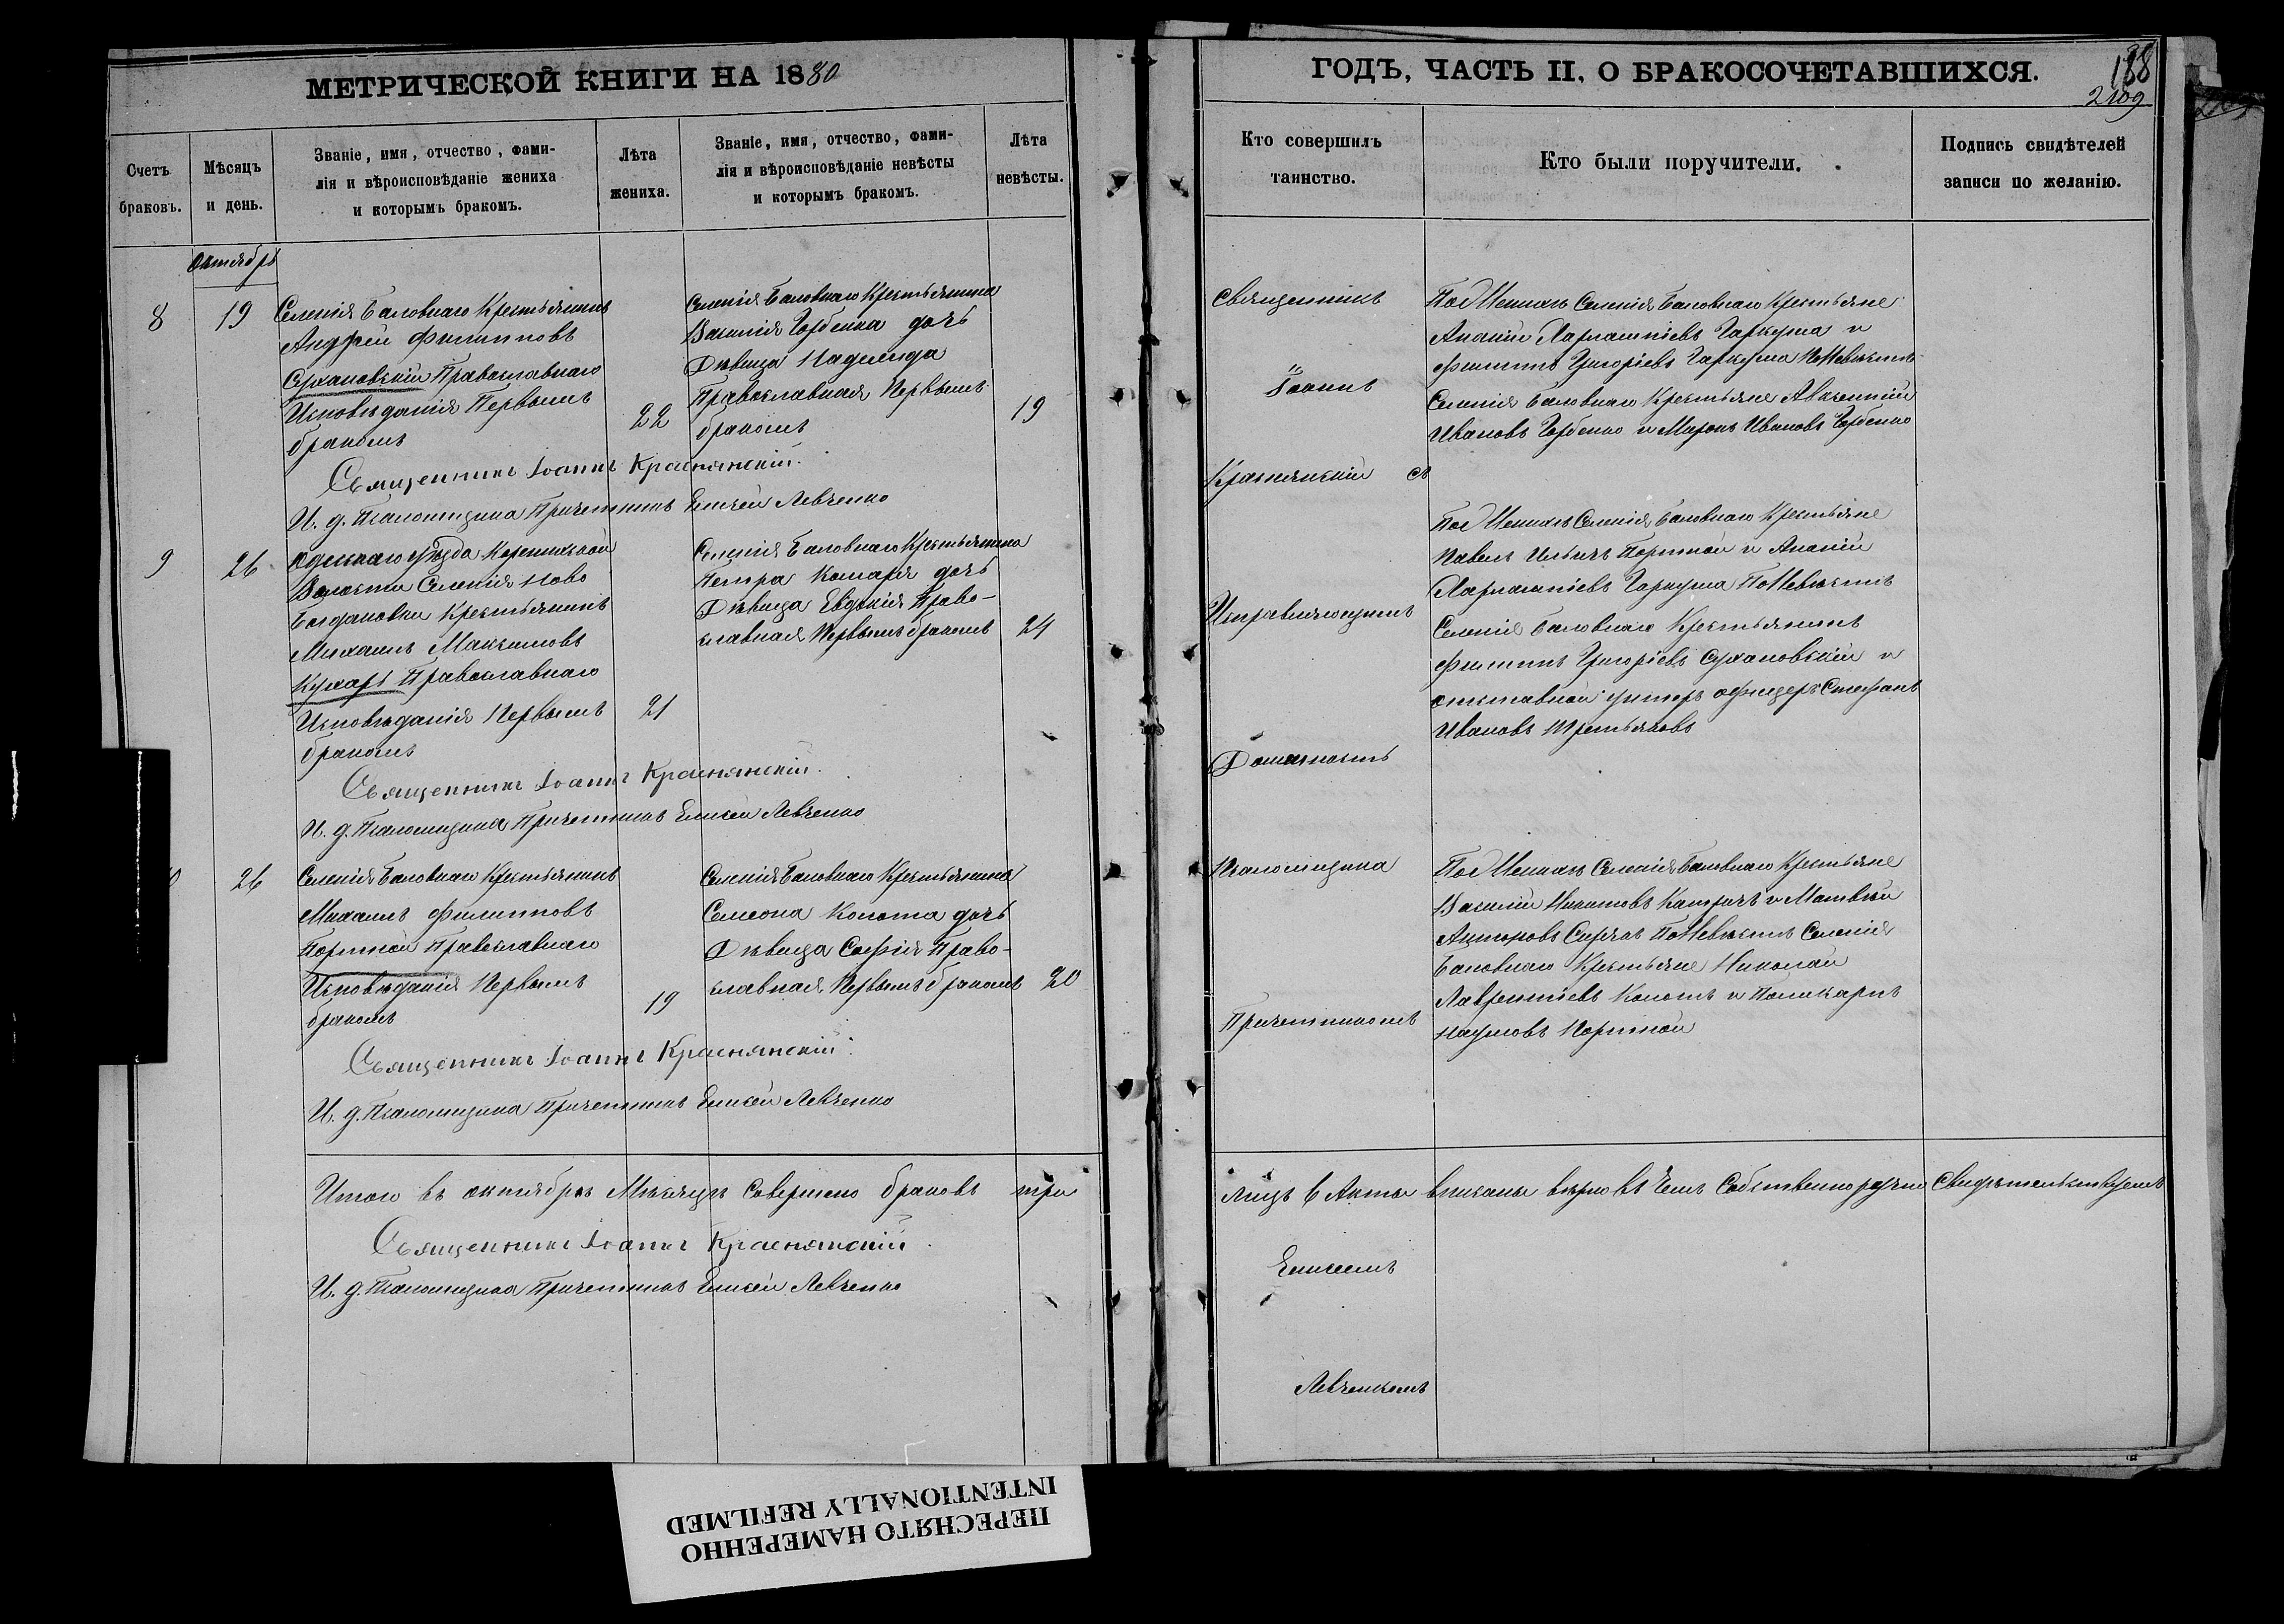 МЕТРИЧЕСКОЙ КНИГИ НА 1880
Счетъ
браковъ.
Мѣсяцъ
и день.
Званіе, имя, отчество, фами-
лія и вѣроисповѣданіе жениха
и которымъ бракомъ.
Лѣта
жениха.
Званіе, имя, отчество, фами-
лія и вѣроисповѣданіе невѣсты
и которымъ бракомъ.
Лѣта
невѣсты.
Октябрь
8
19
Селенія Баловнаго Крестьянинъ
Андрей Филипповъ
Сухановскій Православнаго
Исповѣданія Первымъ
бракомъ
22
Селенія Баловнаго Крестьянина
Василія Горбенка дочь
Дѣвица Надежда
Православная Первымъ
бракомъ
19
Священникъ Іоаннъ Краснянскій.
И. д. Псаломщика Причетникъ Елисей Левченко
9
26
Одесскаго уѣзда Коренихской
Волости Селенія Ново
Богдановки Крестьянинъ
Михаилъ Максимовъ
Кухарь Православнаго
Исповѣданія Первымъ
бракомъ
21
Селенія Баловнаго Крестьянина
Петра Комаря дочь
Дѣвица Евдокія Право-
славная Первымъ бракомъ
24
Священникъ Іоаннъ Краснянскій.
И. д. Псаломщика Причетникъ Елисей Левченко
26
Селенія Баловнаго Крестьянинъ
Михаилъ Филипповъ
Портной Православнаго
Исповѣданія Первымъ
бракомъ
19
Селенія Баловнаго Крестьянина
Семеона Колота дочь
Дѣвица Софія Право-
славная Первымъ бракомъ
20
Священникъ Іоаннъ Краснянскій.
И. д. Псаломщика Причетникъ Елисей Левченко
Итого въ октябрѣ Мѣсяцѣ Совершено браковъ три
Священникъ Іоаннъ Краснянскій.
И. д. Псаломщика Причетникъ Елисей Левченко
ГОДЪ, ЧАСТЬ II, О БРАКОСОЧЕТАВШИХСЯ.
188
2109
Кто совершилъ
таинство.
Кто были поручители.
Подпись свидѣтелей
записи по желанію.
Священникъ
Іоаннъ
Краснянскій съ
Исправляющимъ
Должность
Псаломщика
Причетникомъ
Елисеемъ
Левченкомъ
По Женихѣ Селенія Баловнаго Крестьяне
Ананій Харлампіевъ Гаркуша и
Филиппъ Григоріевъ Гаркуша По Невѣстѣ
Селенія Баловнаго Крестьяне Авксентій
Ивановъ Горбенко и Маркъ Ивановъ Горбенко
По Женихѣ Селенія Баловнаго Крестьяне
Павелъ Ильичъ Портной и Ананій
Харлампіевъ Гаркуша По Невѣстѣ
Селенія Баловнаго Крестьянинъ
Филиппъ Григоріевъ Сухановскій и
отставной унтеръ офицеръ Стефанъ
Ивановъ Третьяковъ
По Женихѣ Селенія Баловнаго Крестьяне
Василій Никитовъ Катричъ и Матвѣй
По Невѣстѣ Селенія
Баловнаго Крестьяне Николай
Лаврентіевъ Колотъ и Поликарпъ
Наумовъ Портной
лицъ 6 Акты вписаны вѣрно въ чемъ Собственноручно Свидѣтельствуемъ
ПЕРЕСНЯТО НАМЕРЕННО
INTENTIONALLY REFILMED